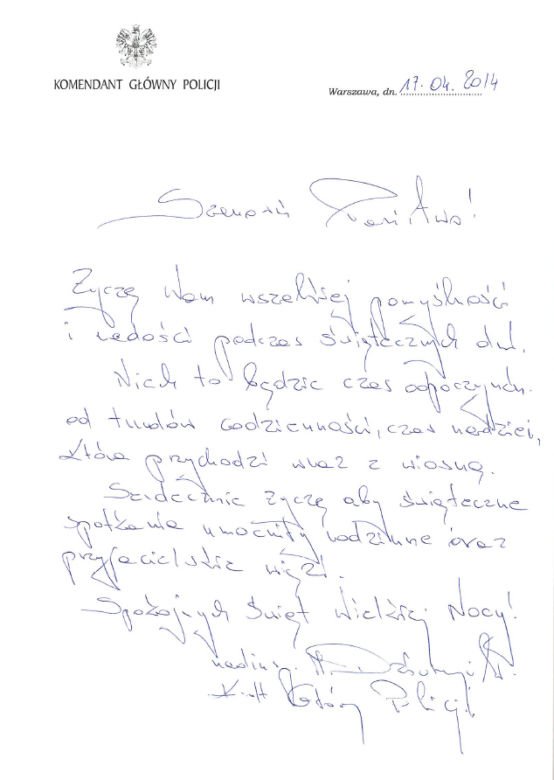 KOMENDANT GŁÓWNY POLICJI
Warszawa, dn. 17.04.2014
Szanowni Państwo!
Życzę Wam wszelkiej pomyślności
i radości podczas świątecznych dni.
Niech to będzie czas odpoczynku
od trudów codzienności, czas nadziei,
która przychodzi wraz z wiosną.
Serdecznie życzę aby świąteczne
spotkania umocniły rodzinne oraz
przyjacielskie więzi.
Spokojnych Świąt Wielkiej Nocy!
nadinsp.
Policji